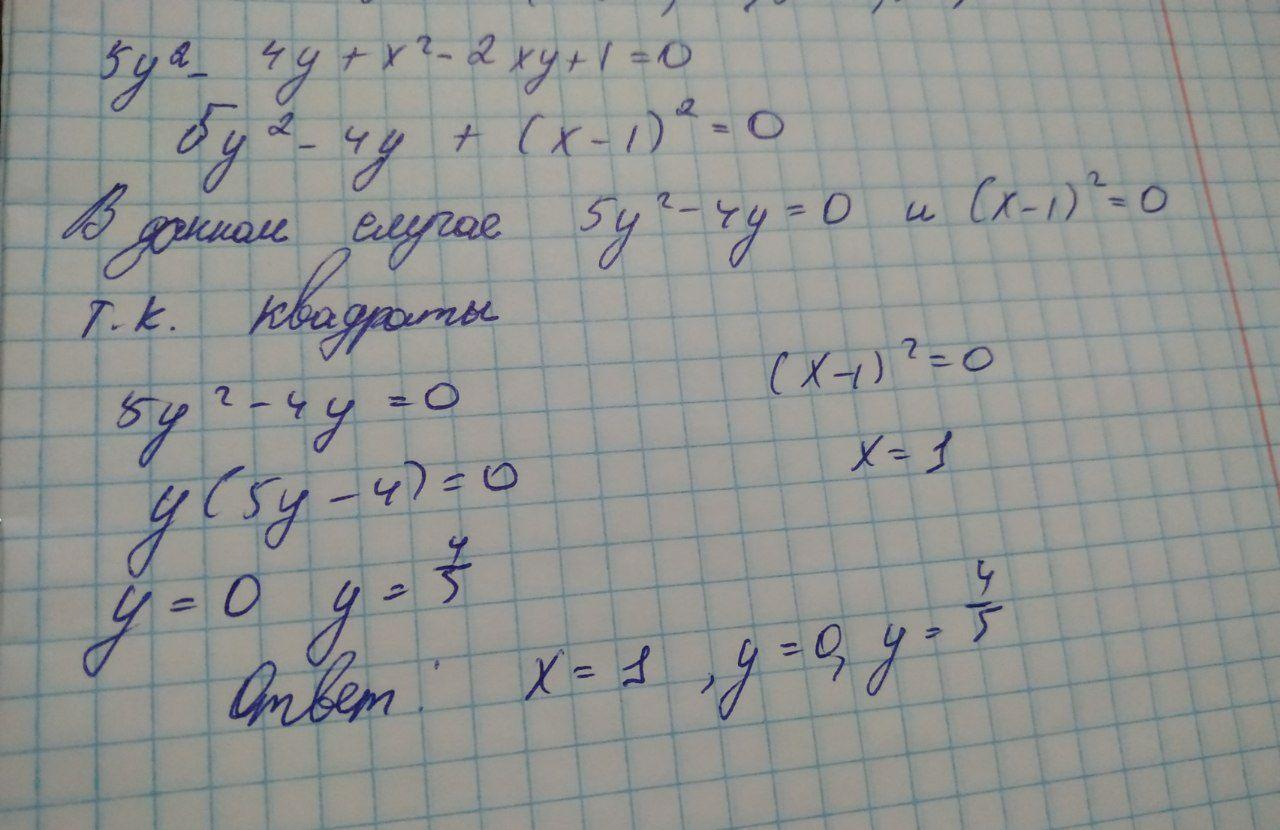 5y² - 4y + x² - 2xy + 1 = 0
5y² - 4y + (x - 1)² = 0
В данном случае 5y² - 4y = 0 и (x - 1)² = 0
т.к. квадраты
5y² - 4y = 0 (x - 1)² = 0
y(5y - 4) = 0 x = 1
y = 0 y = 4/5
Ответ: x = 1, y = 0, y = 4/5